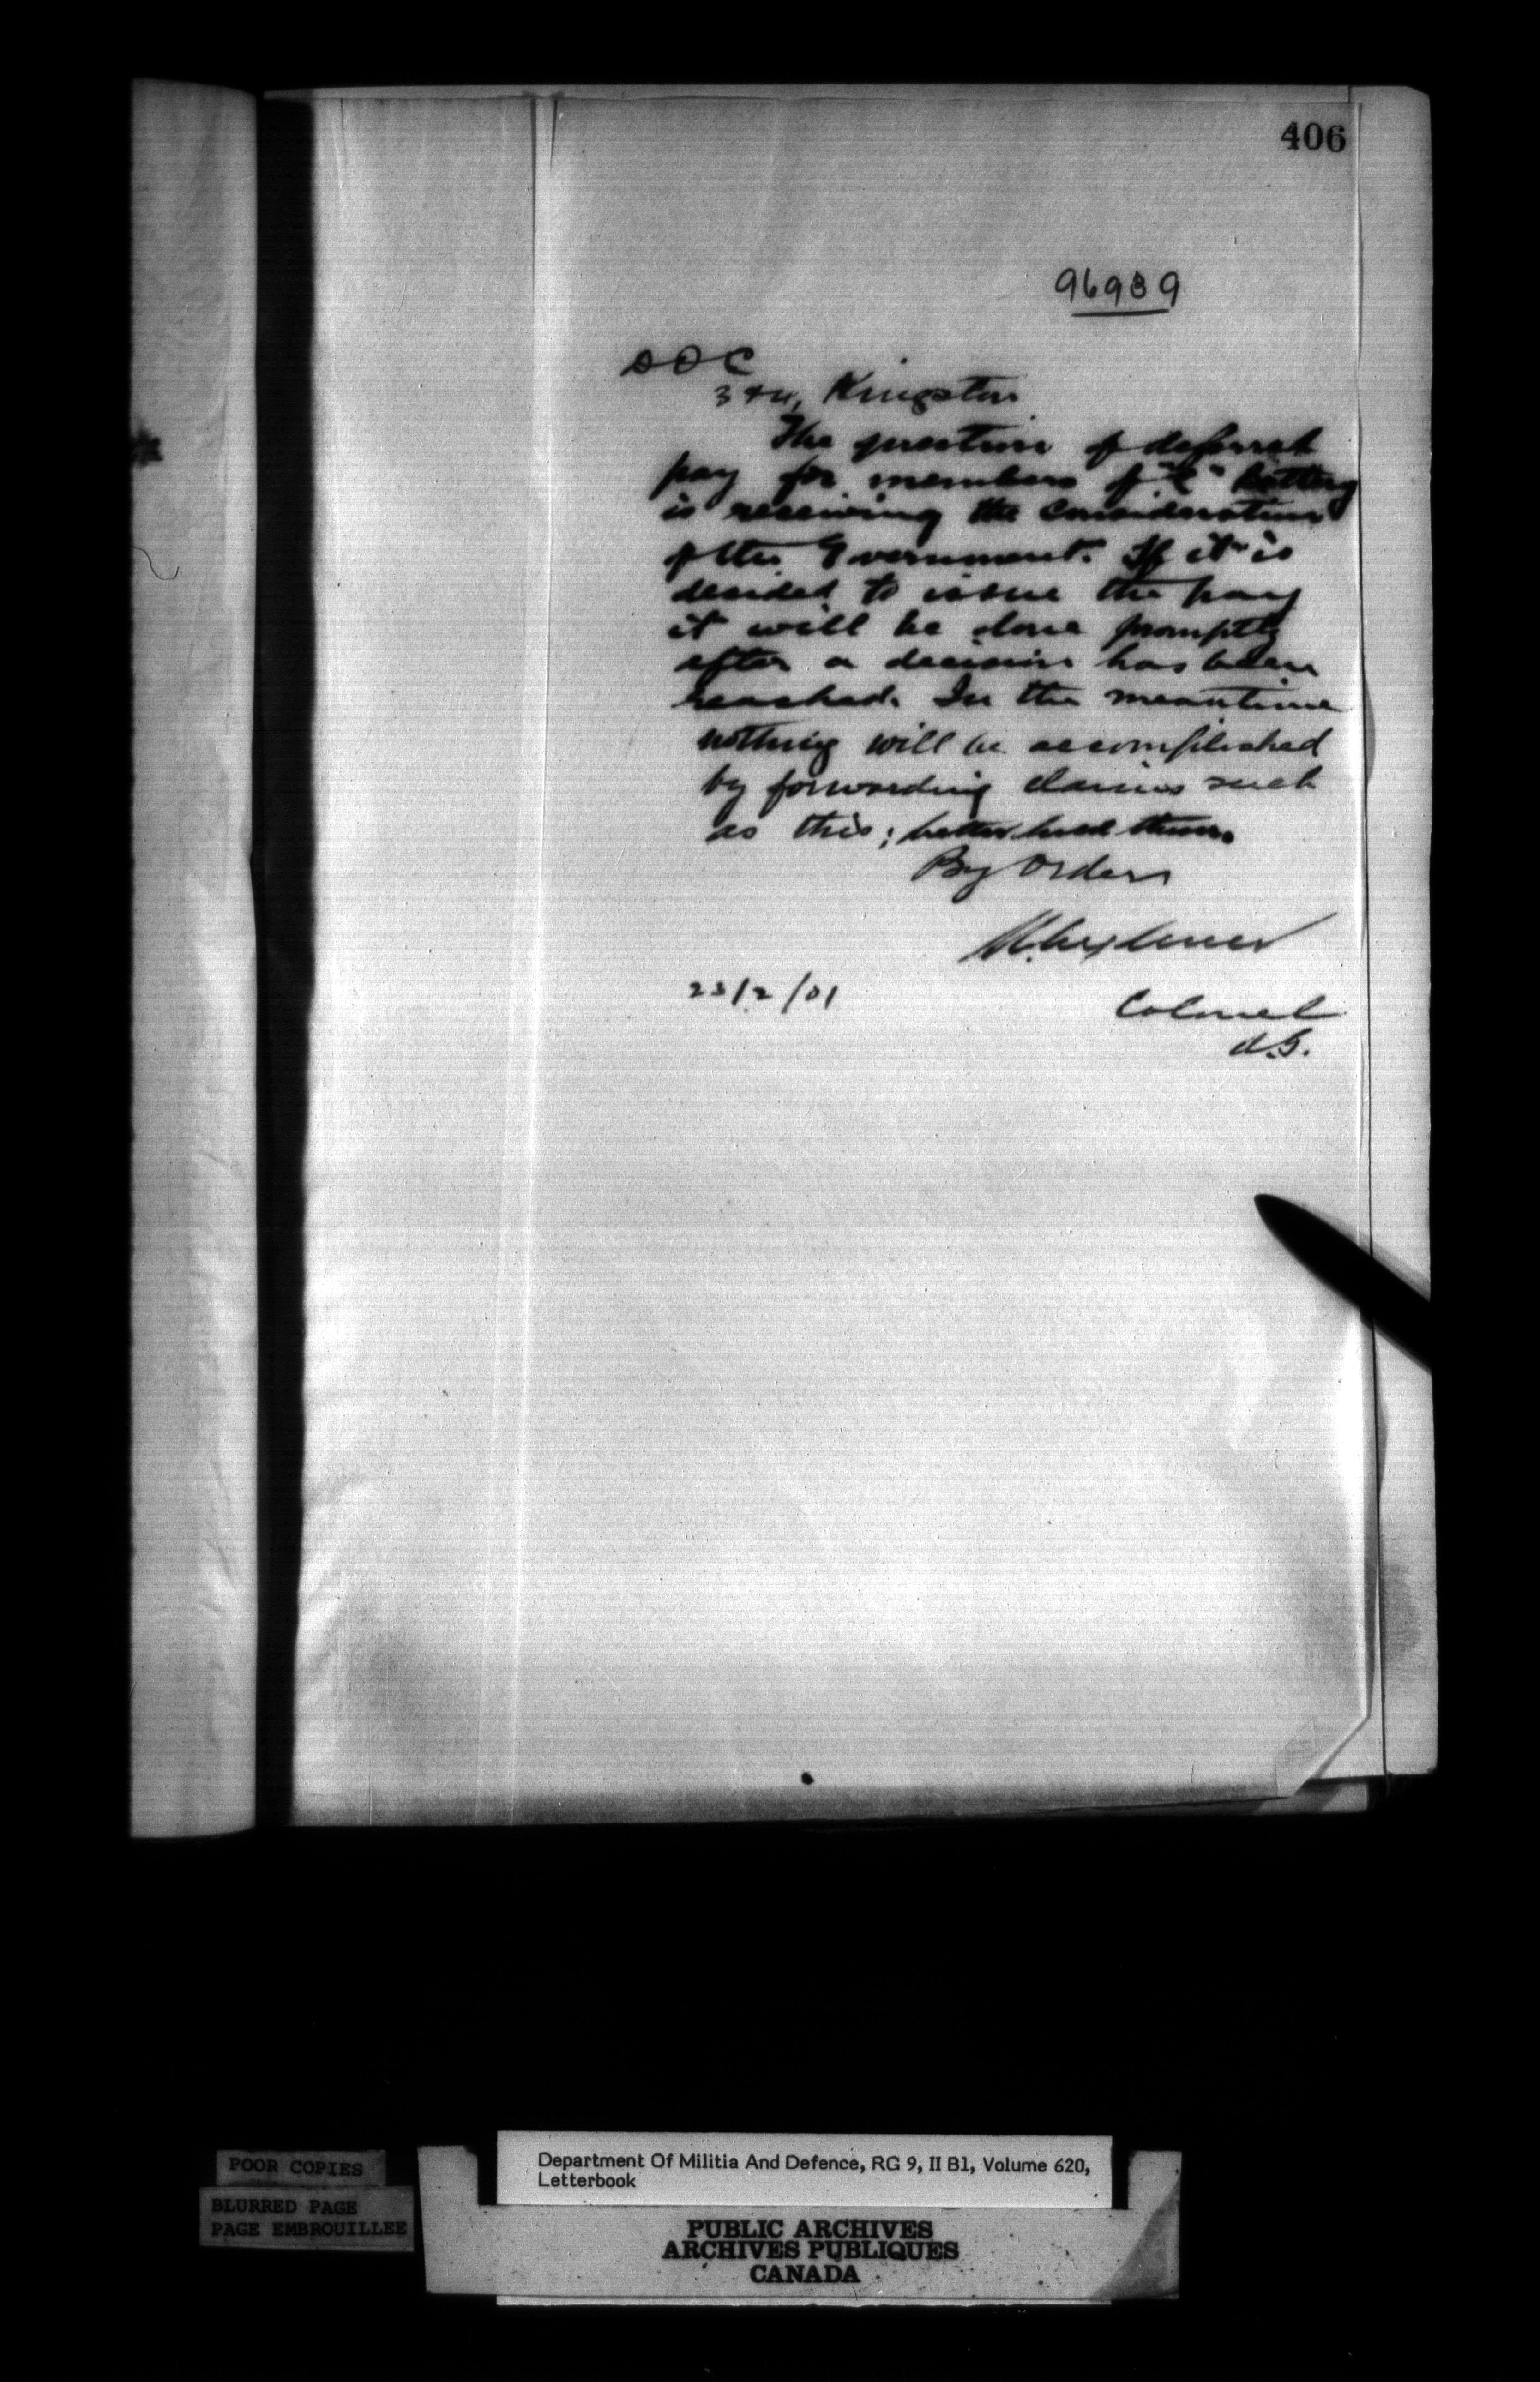 406
96939
D O C
3 & 4, Kingston
The question of deferred
pay for members of "C" Battery
is receiving the consideration
of the Government. If it is
decided to issue the pay
it will be done promptly
after a decision has been
reached. In the meantime
nothing will be accomplished
by forwarding claims such
as this; better hold them.
By Order
Colonel
A.G.
23/2/01
POOR COPIES
BLURRED PAGE
PAGE EMBROUILLEE
Department Of Militia And Defence, RG 9, II B1, Volume 620,
Letterbook
PUBLIC ARCHIVES
ARCHIVES PUBLIQUES
CANADA